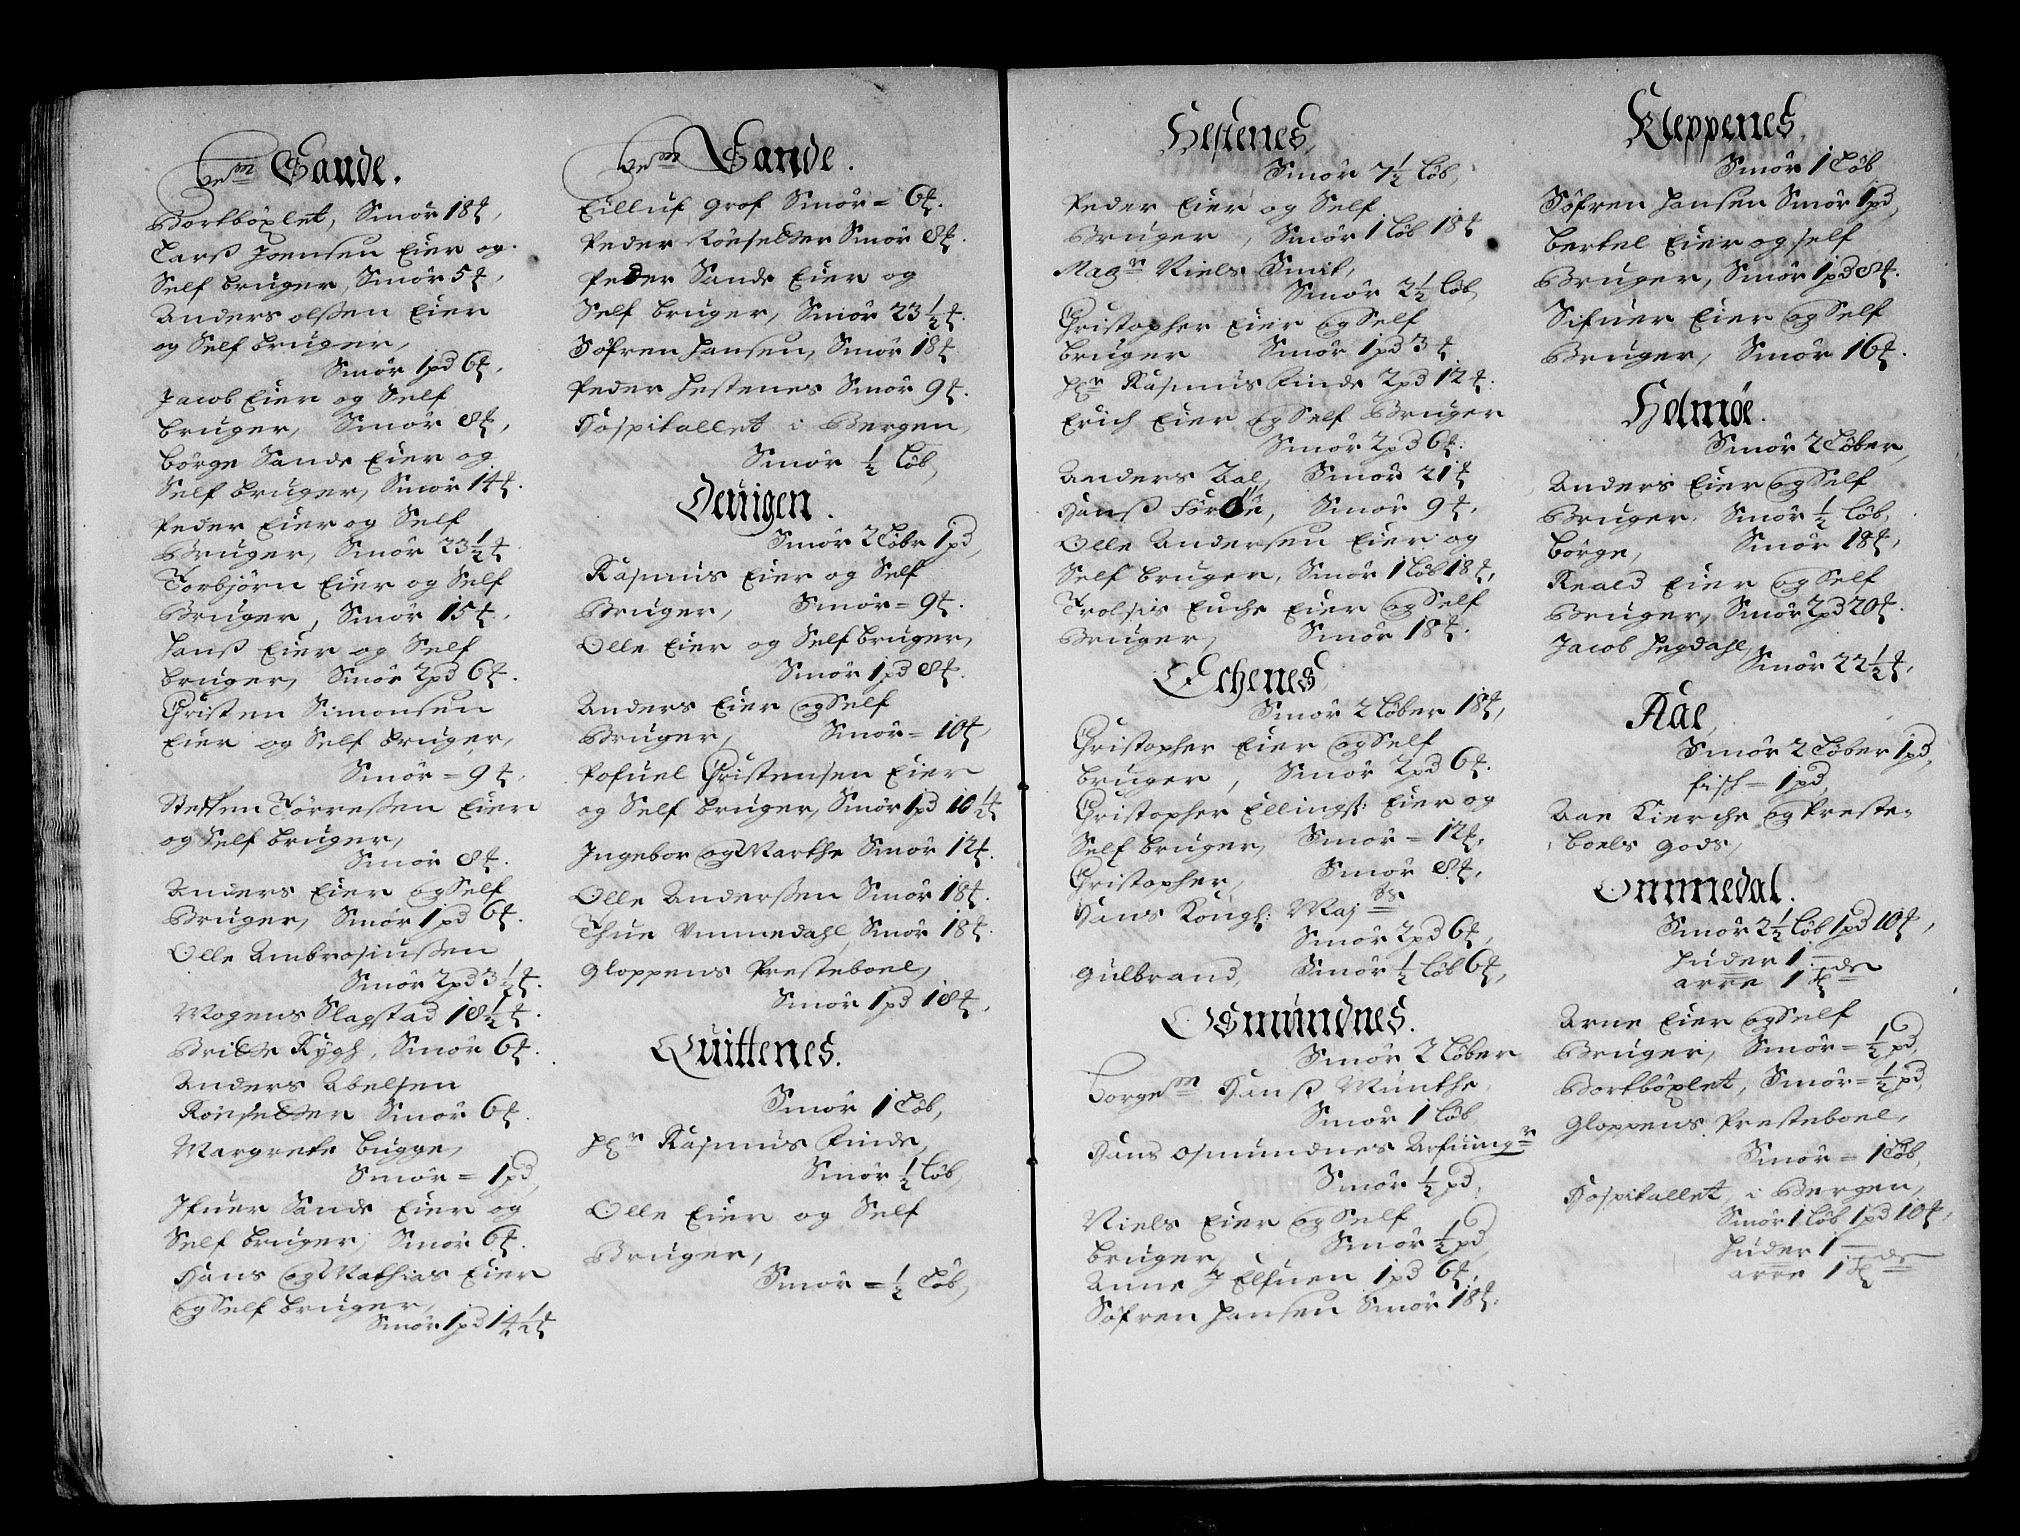 Vem Sande.
Bortböxlet, Smör 18 ₰,
Larß Joensen Eier og
Self bruger, Smör 5 ₰,
Anders olsßen Eier
og Self bruger,
Smör 1 pd 6 ₰,
Jacob Eier og Self
bruger, Smör 8 ₰,
Börge Sande Eier og
Self bruger, Smör 14 ₰.
Peder Eier og Self
Bruger, Smör 23 ½ ₰
Torbjörn Eier og Self
Bruger, Smör 15 ₰,
Hanß Eier og Self
bruger, Smör 2 pd 6 ₰.
Christen Simonsen
Eier og Self bruger,
Smör = 9 ₰,
Steffen Törresßen Eier
og Self bruger,
Smör 8 ₰.
Anders Eier og Self
Bruger, Smör 1 pd 6 ₰.
Olle Ambrosiusßen
Smör 2 pd 3 ½ ₰.
Mogens Slagstad 18 ½ ₰.
Britte Rygh, Smör 6 ₰.
Anders Abelsen
Smör 6 ₰.
Margrete bugge,
Smör = 1 pd,
Ifuer Sande Eier og
Self bruger, Smör 6 ₰.
Hans og Mathias Eier
og Self bruger,
Smör 1 pd 14 ½ ₰
Vem Sande.
Eilluf grof Smör = 6 ₰.
Peder Smör 8 ₰.
Peder Sande Eier og
Self bruger, Smör 23 ½ ₰.
Söfren Hansen, Smör 18 ₰.
Peder Hestenes Smör 9 ₰.
Hospitallet i Bergen,
Smör ½ Löb,
Devigen.
Smör 2 Löbr 1 pd,
Rasmus Eier og Self
Bruger, Smör = 9 ₰.
Olle Eier og Self bruger,
Smör 1 pd 8 ₰.
Anders Eier og Self
Bruger, Smör = 10 ₰,
Pofuel Christensen Eier
og Self bruger, Smör 1 pd 10 ½ ₰
Ingebor og Marthe Smör 12 ₰.
Olle Andersßen Smör 18 ₰.
Thue Ummedahl, Smör 18 ₰.
Gloppens Presteboel,
Smör 1 pd 18 ₰,
Quittenes.
Smör 1 Löb,
Hr Rasmus Finde,
Smör ½ Löb,
Olle Eier og Self
Bruger,
Smör = ½ Löb,
Hestenes,
Smör 7 ½ Löb,
Peder Eier og Self
Bruger, Smör 1 löb 18 ₰
Magr Niels Smit,
Smör 2 ½ löb,
Christopher Eier og Self
bruger Smör 1 pd 3 ₰
Hr Rasmus Finde 2 pd 12 ₰.
Erich Eier og Self Bruger
Smör 2 pd 6 ₰.
Anders Aal, Smör 21 ₰
Hanß Förde, Smör 9 ₰,
Olle Andersen Eier og
Self bruger, Smör 1 löb 18 ₰,
Trolsis Euche Eier og Self
Bruger, Smör 18 ₰.
Echenes,
Smör 2 löber 18 ₰,
Christopher Eier og Self
bruger, Smör 2 pd 6 ₰.
Christopher Ellingß: Eier og
Self bruger, Smör = 12 ₰,
Christopher, Smör 8 ₰,
Hans Kongl: Majts
Smör 2 pd 6 ₰,
Gulbrand, Smör ½ löb 6 ₰,
Osmundnes.
Smör 2 Löber
Borgem Hanß Munthe,
Smör 1 löb
Hans Osmundnes Arfuingr
Smör ½ pd,
Niels Eier og Self
bruger, Smör ½ pd,
Anne J Elfuen 1 pd 6 ₰,
Söfren Hansen Smör 18 ₰,
Kleppenes,
Smör 1 Löb
Söfren Hansen Smör 1 pd,
bertel Eier og self
Bruger, Smör 1 pd 8 ₰.
Sifuer Eier og Self
Bruger, Smör 16 ₰.
Holmöe.
Smör 2 Löber,
Anders Eier og Self
Bruger, Smör ½ Löb,
Börge, Smör 18 ₰,
Reald Eier og Self
Bruger, Smör 2 pd 20 ₰.
Jacob Hegdahl,
Smör 22 ½ ₰,
Aae,
Smör 2 Löber 1 pd,
fisch = 1 pd,
Aae Kierche og Preste-
boels gods,
Ommedal.
Smör 2 ½ Löb 1 pd 10 ₰,
Huder 1
arre 1
Arne Eier og Self
Bruger, Smör = ½ pd,
Bortböxlet, Smör = ½ pd,
Gloppens Presteboel,
Smör = 1 Löb,
Hospitallet, i Bergen,
Smör 1 löb 1 pd 10 ₰,
Huder 1
arre 1